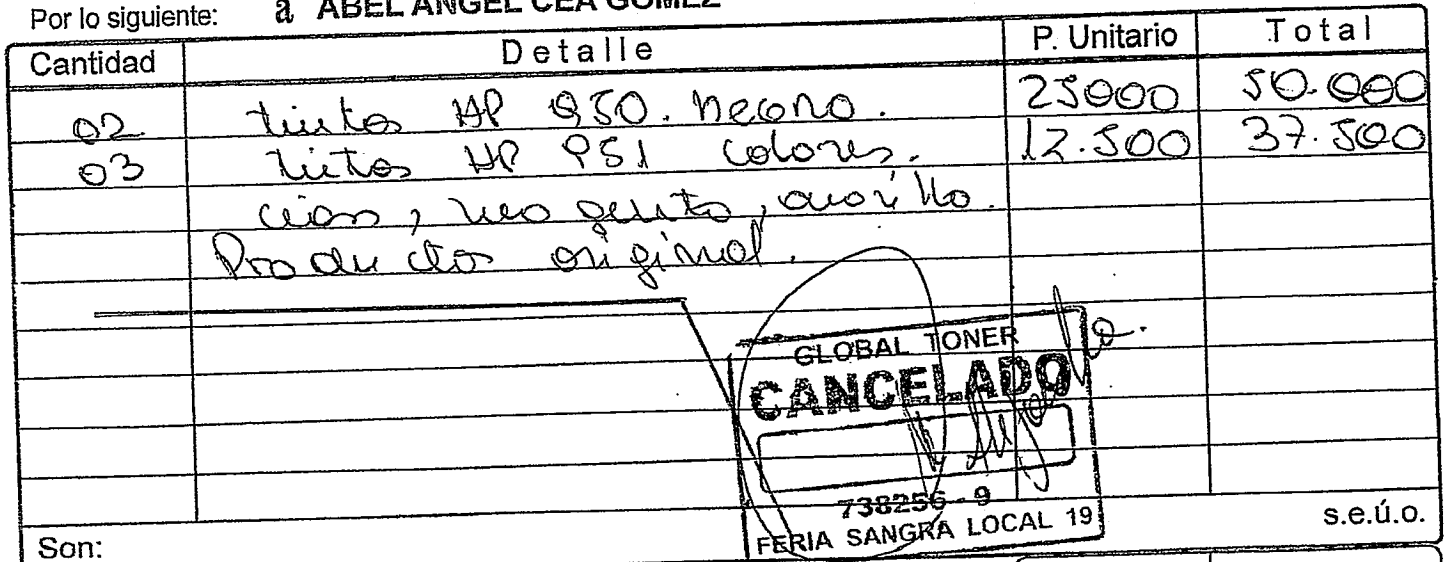 Por lo siguiente: a ABEL ANGEL CEA GOMEZ
Cantidad Detalle P. Unitario Total
02 tintas HP 950. negro. 25000 50.000
03 tintas HP 951 colores. 12.500 37.500
cian, magenta, amarillo.
Productos original.
GLOBAL TONER
CANCELADO
738256-9
FERIA SANGRA LOCAL 19
s.e.ú.o.
Son: